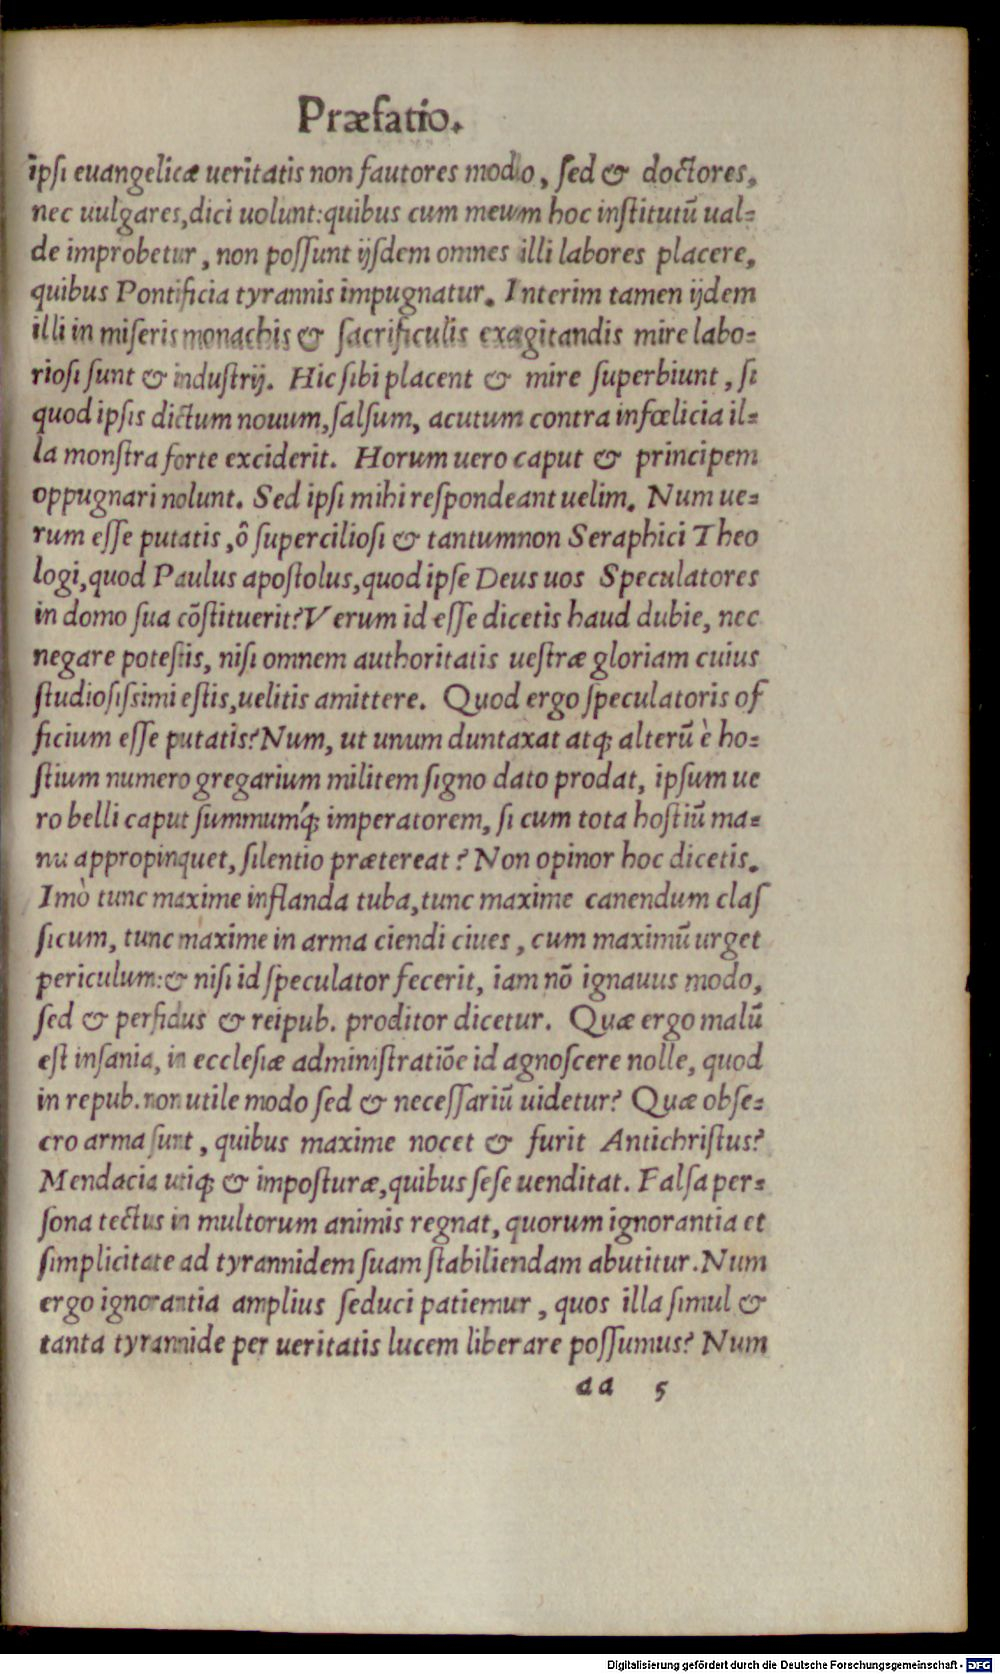 Præfatio.
ipſi euangelicæ ueritatis non fautores modo, ſed & doctores,
nec uulgares, dici uolunt: quibus cum meum hoc inſtitutũ ual-
de improbetur, non poſſunt ijſdem omnes illi labores placere,
quibus Pontificia tyrannis impugnatur. Interim tamen ijdem
illi in miſeris monachis & ſacrificulis exagitandis mire labo-
rioſi ſunt & induſtrij. Hic ſibi placent & mire ſuperbiunt, ſi
quod ipſis dictum nouum, ſalſum, acutum contra infœlicia il-
la monſtra forte exciderit. Horum uero caput & principem
oppugnari nolunt. Sed ipſi mihi reſpondeant uelim. Num ue-
rum eſſe putatis, ô ſupercilioſi & tantumnon Seraphici Theo
logi, quod Paulus apoſtolus, quod ipſe Deus uos Speculatores
in domo ſua cõſtituerit? Verum id eſſe dicetis haud dubie, nec
negare poteſtis, niſi omnem authoritatis ueſtræ gloriam cuius
ſtudioſiſsimi eſtis, uelitis amittere. Quod ergo ſpeculatoris of
ficium eſſe putatis? Num, ut unum duntaxat atq; alterũ è ho-
ſtium numero gregarium militem ſigno dato prodat, ipſum ue
ro belli caput ſummumq́; imperatorem, ſi cum tota hoſtiũ ma-
nu appropinquet, ſilentio prætereat? Non opinor hoc dicetis.
Imò tunc maxime inflanda tuba, tunc maxime canendum claſ
ſicum, tunc maxime in arma ciendi ciues, cum maximũ urget
periculum: & niſi id ſpeculator fecerit, iam nõ ignauus modo,
ſed & perfidus & reipub. proditor dicetur. Quæ ergo malũ
eſt inſania, in eccleſiæ adminiſtratiõe id agnoſcere nolle, quod
in repub. non utile modo ſed & neceſſariũ uidetur? Quæ obſe-
cro arma ſunt, quibus maxime nocet & furit Antichriſtus?
Mendacia utiq; & impoſturæ, quibus ſeſe uenditat. Falſa per-
ſona tectus in multorum animis regnat, quorum ignorantia et
ſimplicitate ad tyrannidem ſuam ſtabiliendam abutitur. Num
ergo ignorantia amplius ſeduci patiemur, quos illa ſimul &
tanta tyrannide per ueritatis lucem liberare poſſumus? Num
aa 5
Digitalisierung gefördert durch die Deutsche Forschungsgemeinschaft - DFG